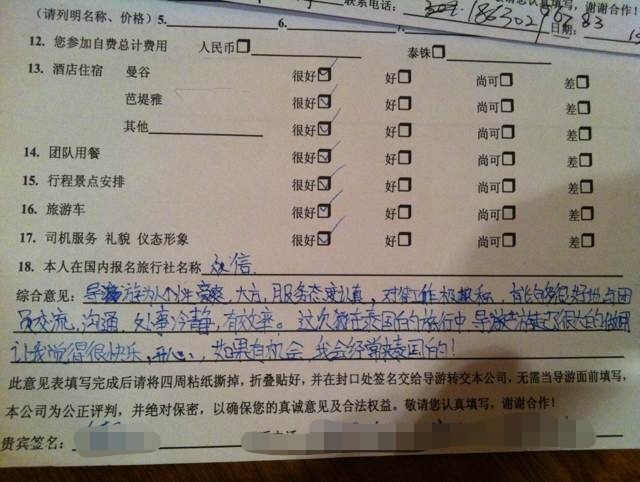 联系电话：
谢谢合作！
日期：
(请列明名称、价格) 5. 6.
12. 您参加自费总计费用 人民币☐ 泰铢☐
13. 酒店住宿 曼谷 很好☑ 好☐ 尚可☐ 差☐
芭堤雅 很好☑ 好☐ 尚可☐ 差☐
其他 很好☑ 好☐ 尚可☐ 差☐
14. 团队用餐 很好☑ 好☐ 尚可☐ 差☐
15. 行程景点安排 很好☑ 好☐ 尚可☐ 差☐
16. 旅游车 很好☑ 好☐ 尚可☐ 差☐
17. 司机服务 礼貌 仪态形象 很好☑ 好☐ 尚可☐ 差☐
18. 本人在国内报名旅行社名称 众信
综合意见：导游 为人个性 大方，服务态度认真，对待工作积极 ，能够很好地与团
员交流，沟通，处事冷静，有效率。这次我在泰国的旅行中导游 了很大的作用
让我觉得很快乐，开心，如果有机会，我会经常来泰国的！
此意见表填写完成后请将四周粘纸撕掉，折叠贴好，并在封口处签名交给导游转交本公司，无需当导游面前填写，
本公司为公正评判，并绝对保密，以确保您的真诚意见及合法权益。敬请您认真填写，谢谢合作！
贵宾签名：